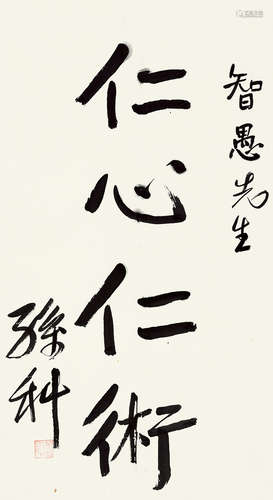 智愚先生
仁心仁術
孫科